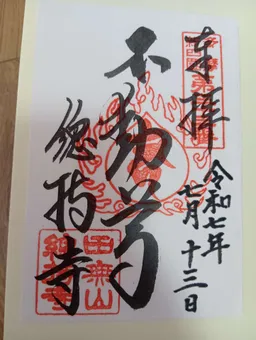 奉拝
令和七年
七月十三日
不動尊
總持寺
田無山
總持寺